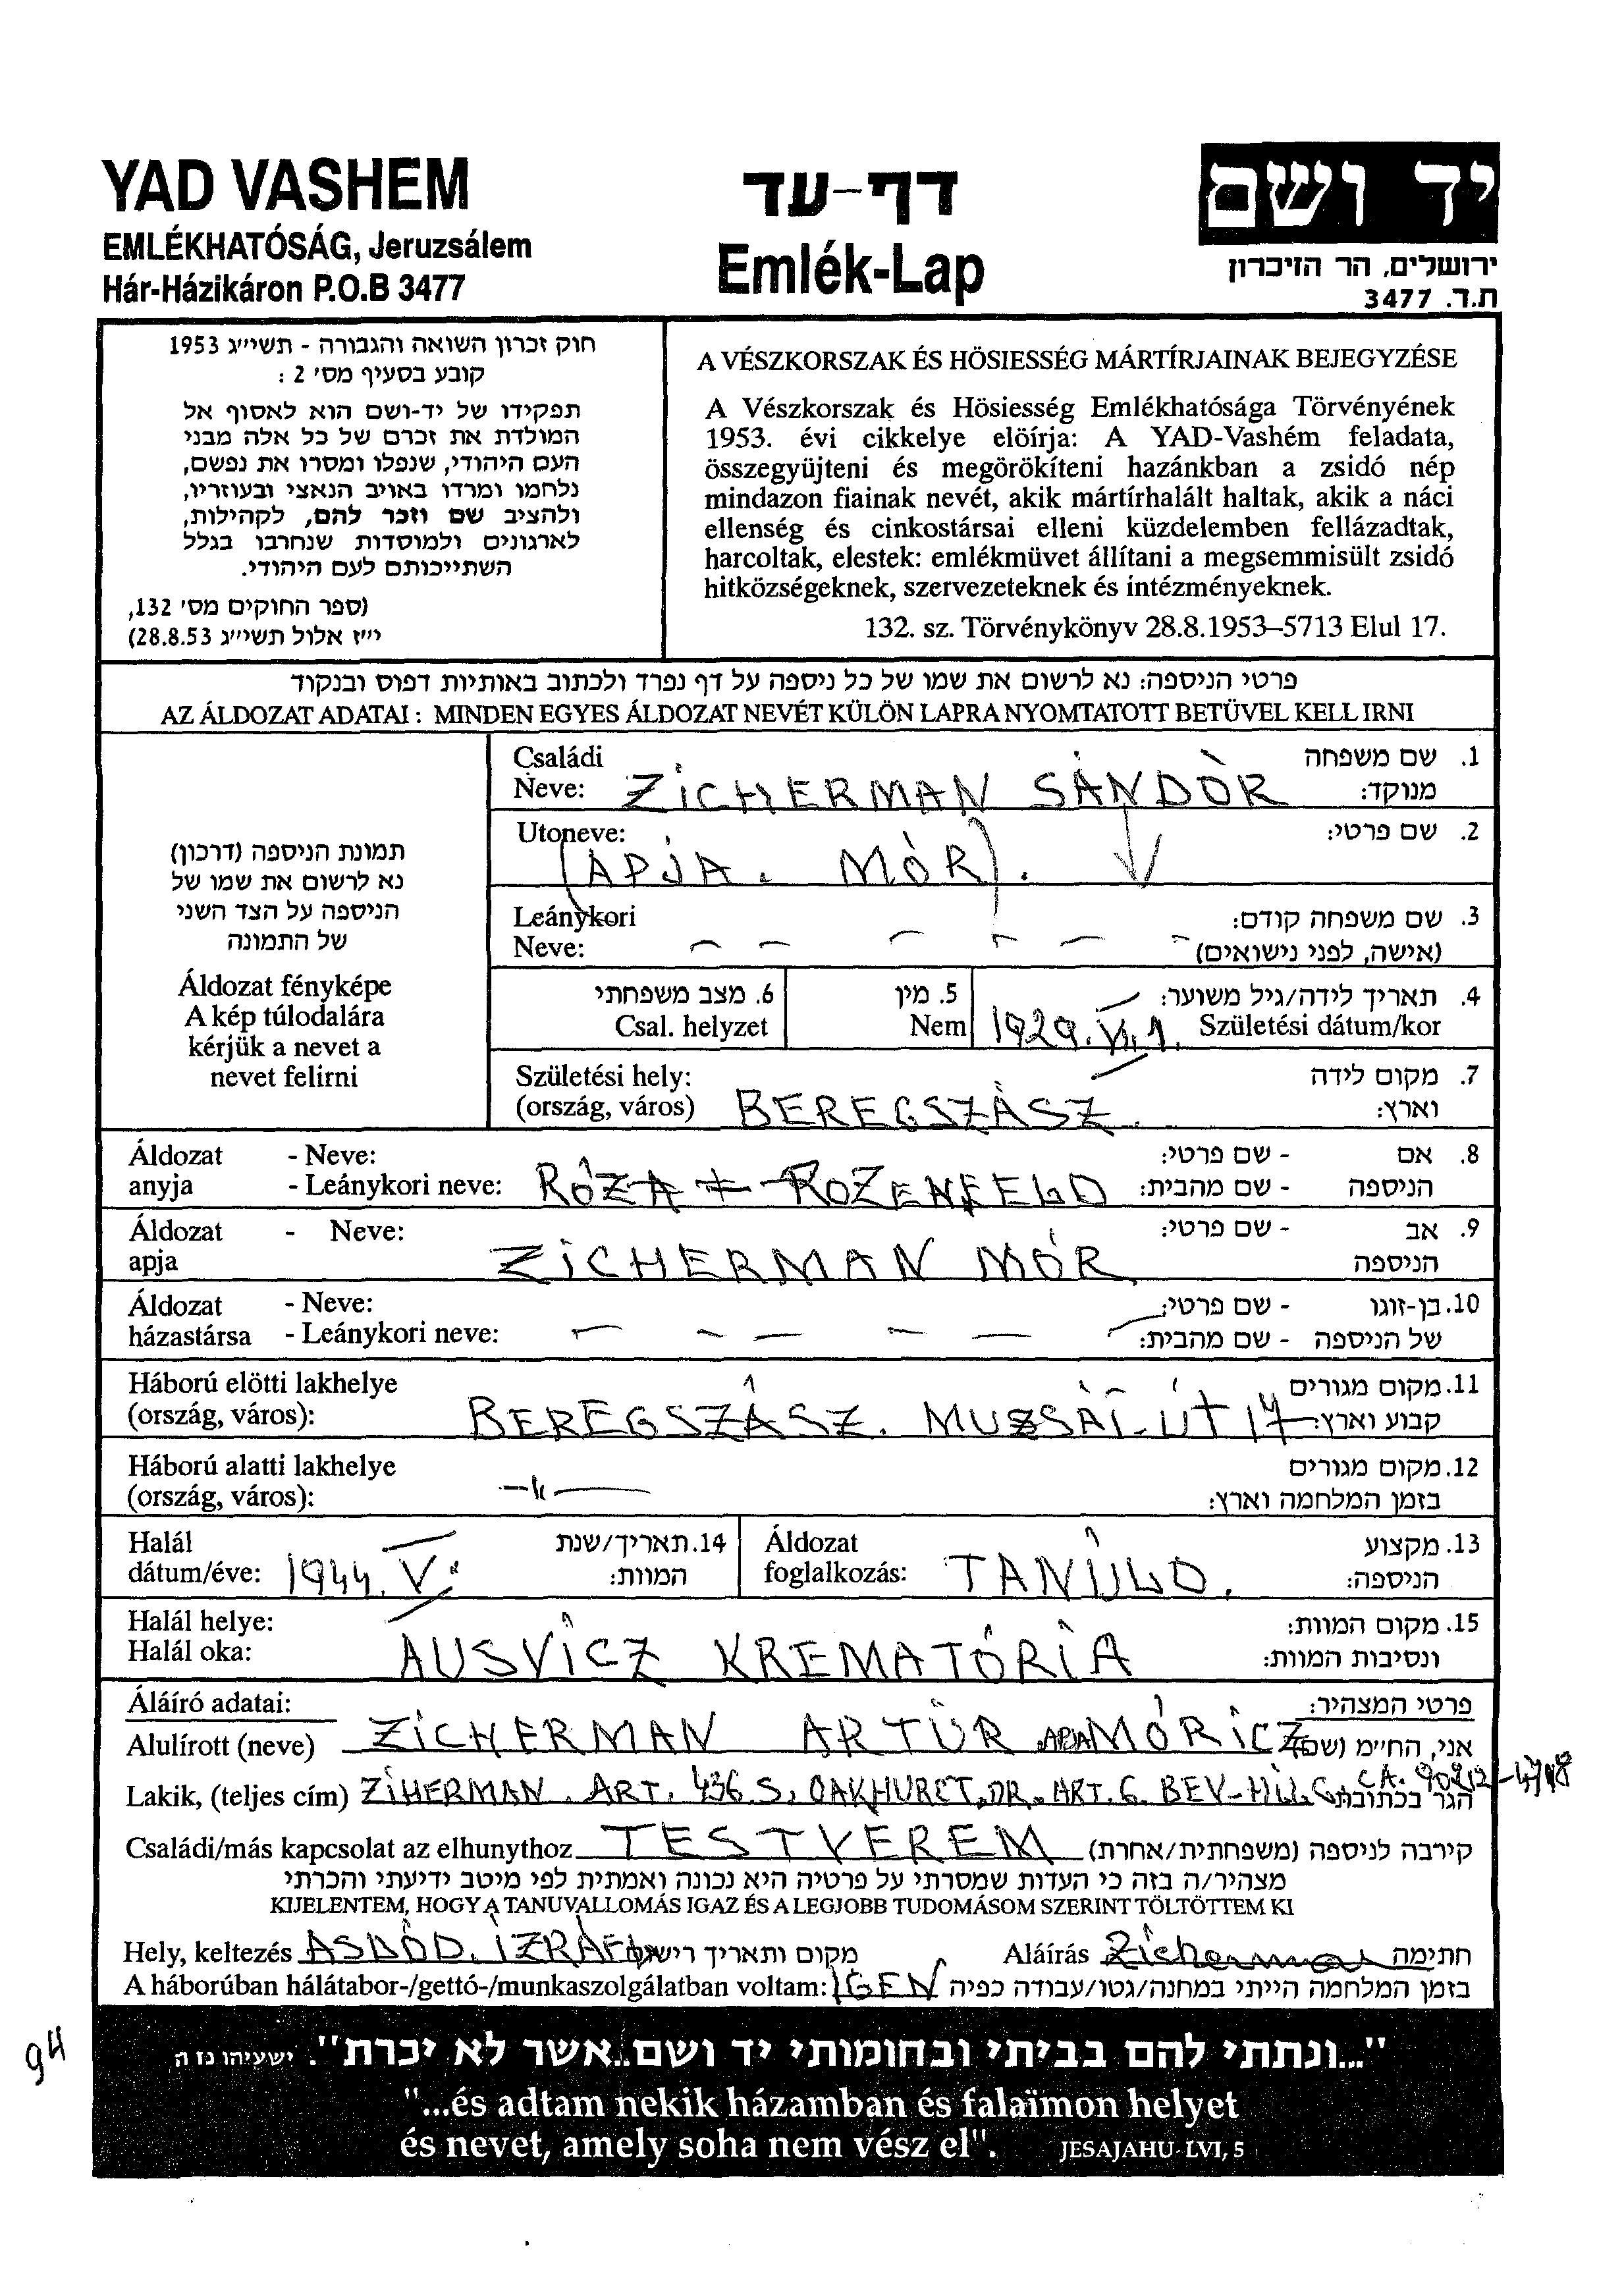 YAD VASHEM
EMLÉKHATÓSÁG, Jeruzsálem
Hár-Házikáron P.O.B 3477
דף-עד
Emlék-Lap
יד ושם
ירושלים, הר הזיכרון
ת.ד. 3477
חוק זכרון השואה והגבורה - תשי״ג 1953
קובע בסעיף מס׳ 2 :
תפקידו של יד-ושם הוא לאסוף אל
המולדת את זכרם של כל אלה מבני
העם היהודי, שנפלו ומסרו את נפשם,
נלחמו ומרדו באויב הנאצי ובעוזריו,
ולהציב שם וזכר להם, לקהילות,
לארגונים ולמוסדות שנחרבו בגלל
השתייכותם לעם היהודי.
(ספר החוקים מס׳ 132,
י״ז אלול תשי״ג 28.8.53)
A VÉSZKORSZAK ÉS HÖSIESSÉG MÁRTÍRJAINAK BEJEGYZÉSE
A Vészkorszak és Hösiesség Emlékhatósága Törvényének
1953. évi cikkelye elöírja: A YAD-Vashém feladata,
összegyüjteni és megörökíteni hazánkban a zsidó nép
mindazon fiainak nevét, akik mártírhalált haltak, akik a náci
ellenség és cinkostársai elleni küzdelemben fellázadtak,
harcoltak, elestek: emlékmüvet állítani a megsemmisült zsidó
hitközségeknek, szervezeteknek és intézményeknek.
132. sz. Törvénykönyv 28.8.1953–5713 Elul 17.
פרטי הניספה: נא לרשום את שמו של כל ניספה על דף נפרד ולכתוב באותיות דפוס ובנקוד
AZ ÁLDOZAT ADATAI : MINDEN EGYES ÁLDOZAT NEVÉT KÜLÖN LAPRA NYOMTATOTT BETÜVEL KELL IRNI
תמונת הניספה (דרכון)
נא לרשום את שמו של
הניספה על הצד השני
של התמונה
Áldozat fényképe
A kép túlodalára
kérjük a nevet a
nevet felirni
Családi 1. שם משפחה
Neve: ZICHERMAN SÁNDÒR מנוקד:
Utoneve: 2. שם פרטי:
(APJA. MÓR).
Leánykori 3. שם משפחה קודם:
Neve: – – – – – – (אישה, לפני נישואים)
6. מצב משפחתי 5. מין 4. תאריך לידה/גיל משוער:
Csal. helyzet Nem 1929. VII 1. Születési dátum/kor
Születési hely: 7. מקום לידה
(ország, város) BEREGSZÁSZ. וארץ:
Áldozat - Neve: - שם פרטי: 8. אם
anyja - Leánykori neve: RÓZA ROZENFELD - שם מהבית: הניספה
Áldozat - Neve: - שם פרטי: 9. אב
apja ZICHERMAN MÓR הניספה
Áldozat - Neve: - שם פרטי: 10. בן-זוגו
házastársa - Leánykori neve: – – – – – - שם מהבית: של הניספה
Háború elötti lakhelye 11. מקום מגורים
(ország, város): BEREGSZÁSZ. MUZSAI-ÚT 17 קבוע וארץ:
Háború alatti lakhelye 12. מקום מגורים
(ország, város): –"– בזמן המלחמה וארץ:
Halál 14. תאריך/שנת Áldozat 13. מקצוע
dátum/éve: 1944. V. המוות: foglalkozás: TANÚLO. הניספה:
Halál helye: 15. מקום המוות:
Halál oka: AUSVICZ KREMATÓRIA ונסיבות המוות:
Áláíró adatai: פרטי המצהיר:
Alulírott (neve) ZICHERMAN ARTÚR APJA MÓRICZ אני, החי״מ (שם)
Lakik, (teljes cím) ZIHERMAN. ART. 436 S. OAKHURST. DR. ART. 6. BEV-HILL CA. הגר בכתובת
Családi/más kapcsolat az elhunythoz TESTVEREM קירבה לניספה (משפחתית/אחרת)
מצהיר/ה בזה כי העדות שמסרתי על פרטיה היא נכונה ואמתית לפי מיטב ידיעתי והכרתי
KIJELENTEM, HOGY A TANUVALLOMÁS IGAZ ÉS A LEGJOBB TUDOMÁSOM SZERINT TÖLTÖTTEM KI
Hely, keltezés ASDÓD. IZRÁEL מקום ותאריך רישום Aláírás Zicherman חתימה
A háborúban hálátabor-/gettó-/munkaszolgálatban voltam: IGEN בזמן המלחמה הייתי במחנה/גטו/עבודה כפיה
94
"...ונתתי להם בביתי ובחומותי יד ושם..אשר לא יכרת". ישעיהו נז ה
"...és adtam nekik házamban és falaïmon helyet
és nevet, amely soha nem vész el". JESAJAHU LVI, 5